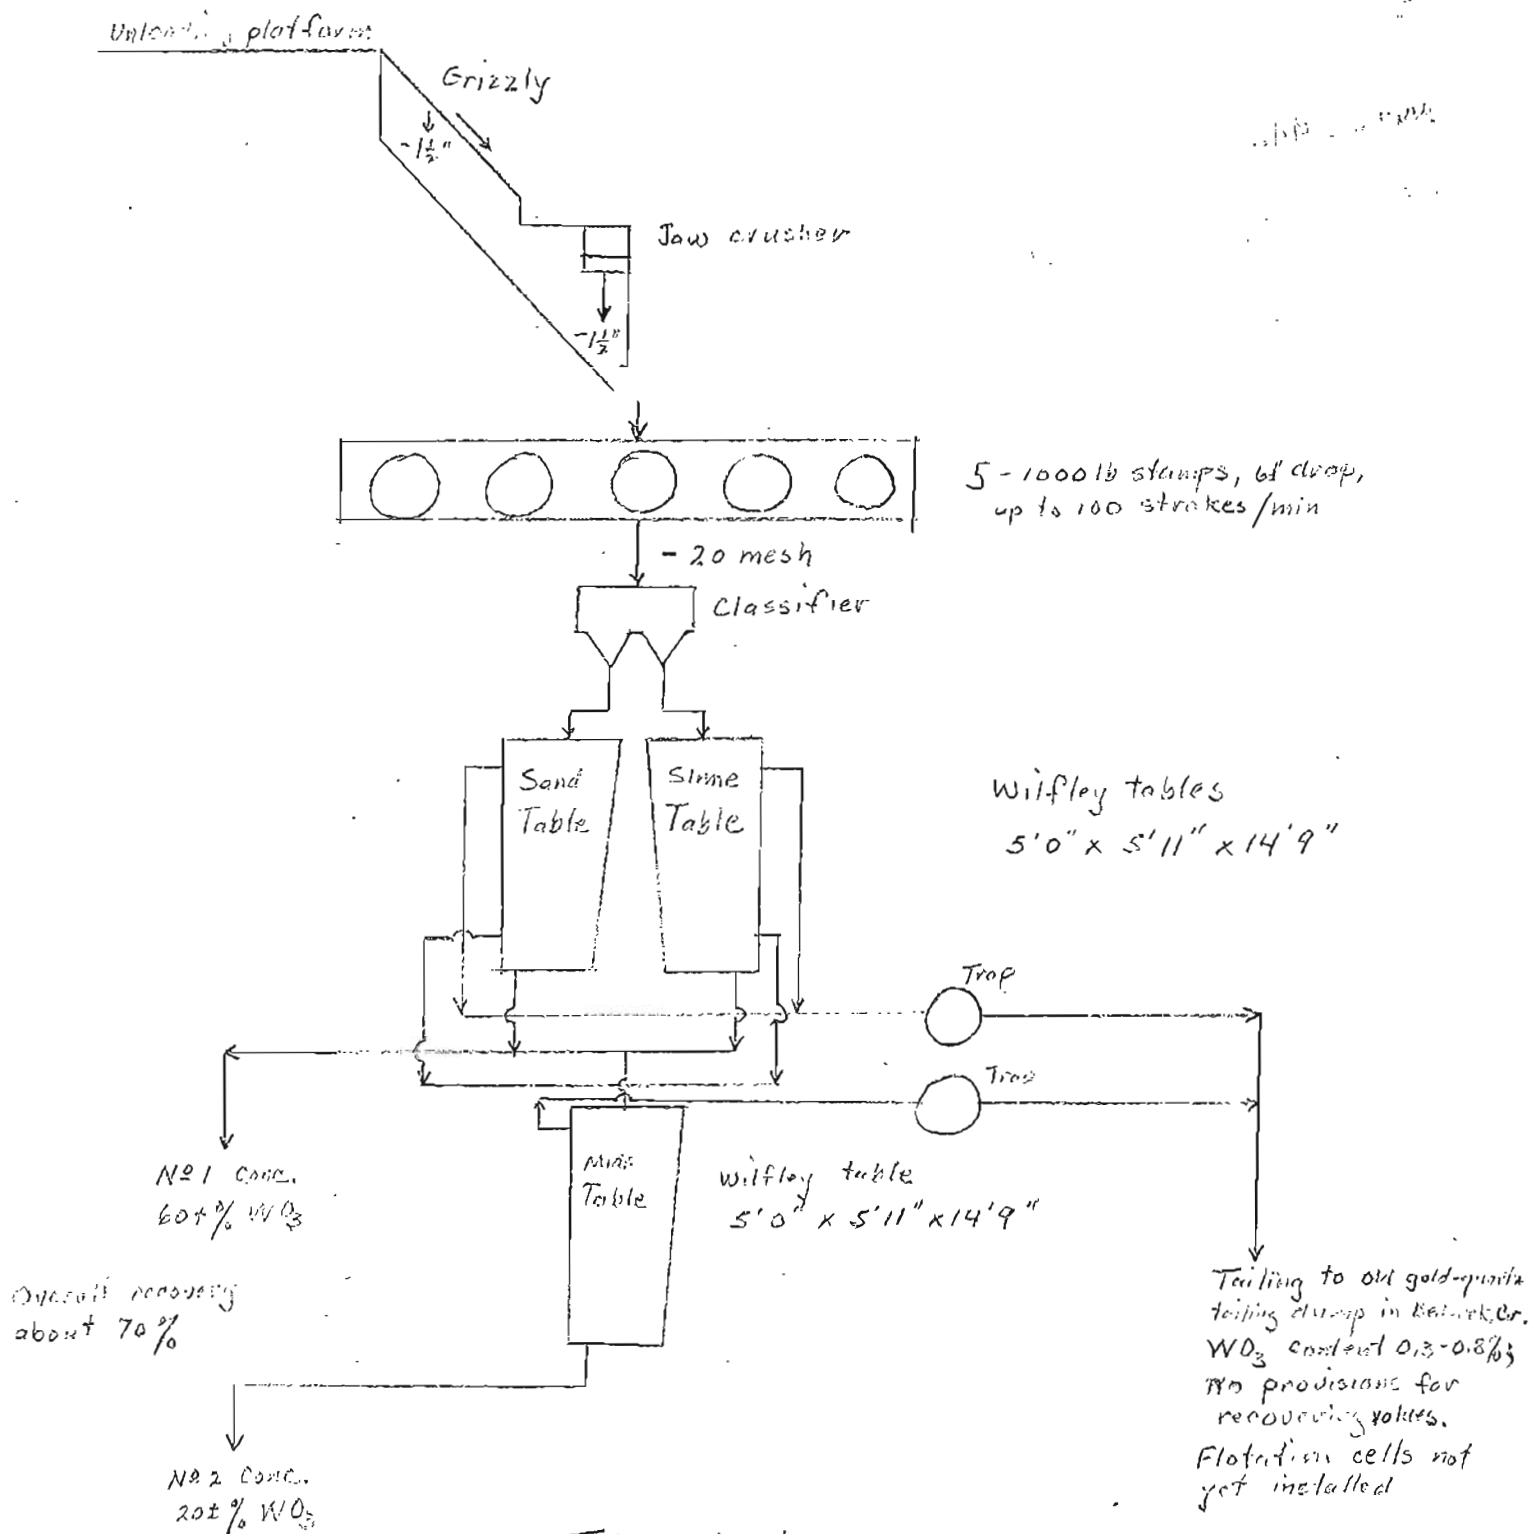 Unloading platform
Grizzly
-1½"
Jaw crusher
-1½"
5 - 1000 lb stamps, 6" drop,
up to 100 strokes/min
- 20 mesh
Classifier
Sand
Table
Slime
Table
Wilfley tables
5'0" x 5'11" x 14'9"
Trap
Trap
Nº 1 Conc.
60±% WO3
Midd
Table
Wilfley table
5'0" x 5'11" x 14'9"
Overall recovery
about 70%
Tailing to old gold-quartz
tailing dump in Cr.
WO3 content 0.3-0.8%;
No provisions for
recovering values.
Flotation cells not
yet installed
Nº 2 Conc.
20±% WO3